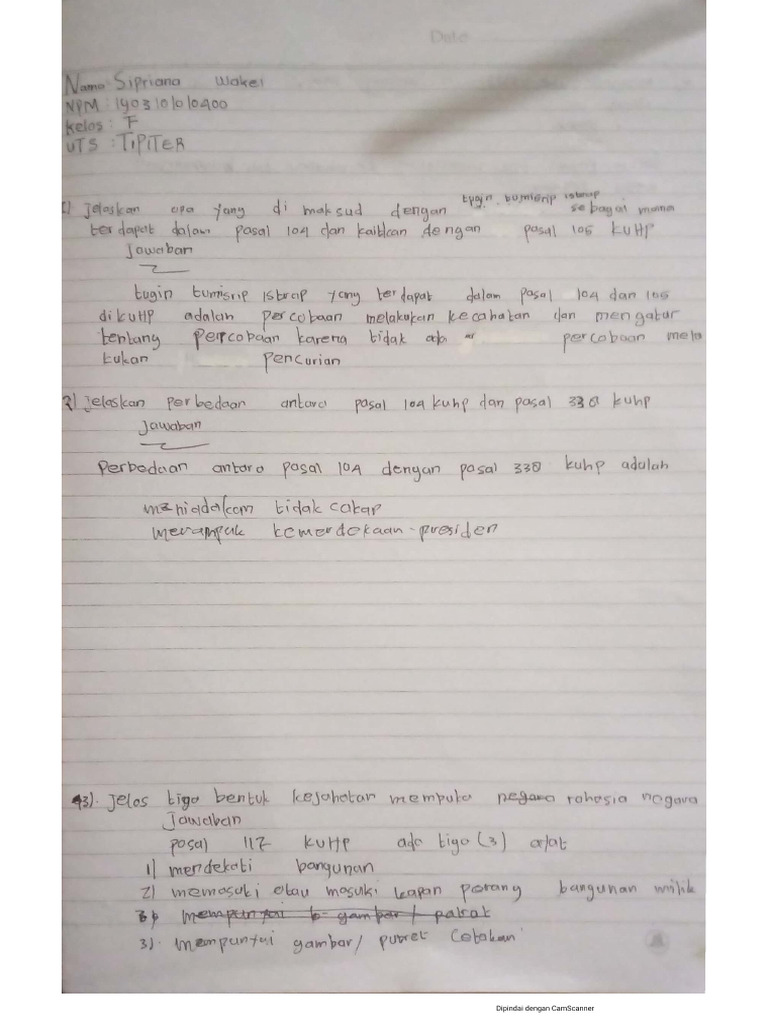 Date
Nama : Sipriana Wakei
NPM : 1403 10 10 10400
Kelas : F
UTS : TIPITER
1) jelaskan apa yang di maksud dengan sebagai mana
terdapat dalam pasal 104 dan kaitkan dengan pasal 106 KUHP
Jawaban
tugin tumisrip istrap yang terdapat dalam pasal 104 dan 106
di KUHP adalah percobaan melakukan kecahatan dan mengatur
tentang percobaan karena tidak ada percobaan mela
kukan pencurian
2) jelaskan perbedaan antara pasal 104 kuhp dan pasal 338 kuhp
Jawaban
Perbedaan antara pasal 104 dengan pasal 338 kuhp adalah
meniadakan tidak cakap
merampak kemerdekaan - presiden
3). Jelas tiga bentuk kejahatan mempuka negara rahasia negara
Jawaban
pasal 112 KUHP ada tiga (3)
1) mendekati bangunan
2) memasuki atau masuki kapan perang bangunan milik
3) gambar / patrat
3). mempunyai gambar / putret cetakan
Dipindai dengan CamScanner